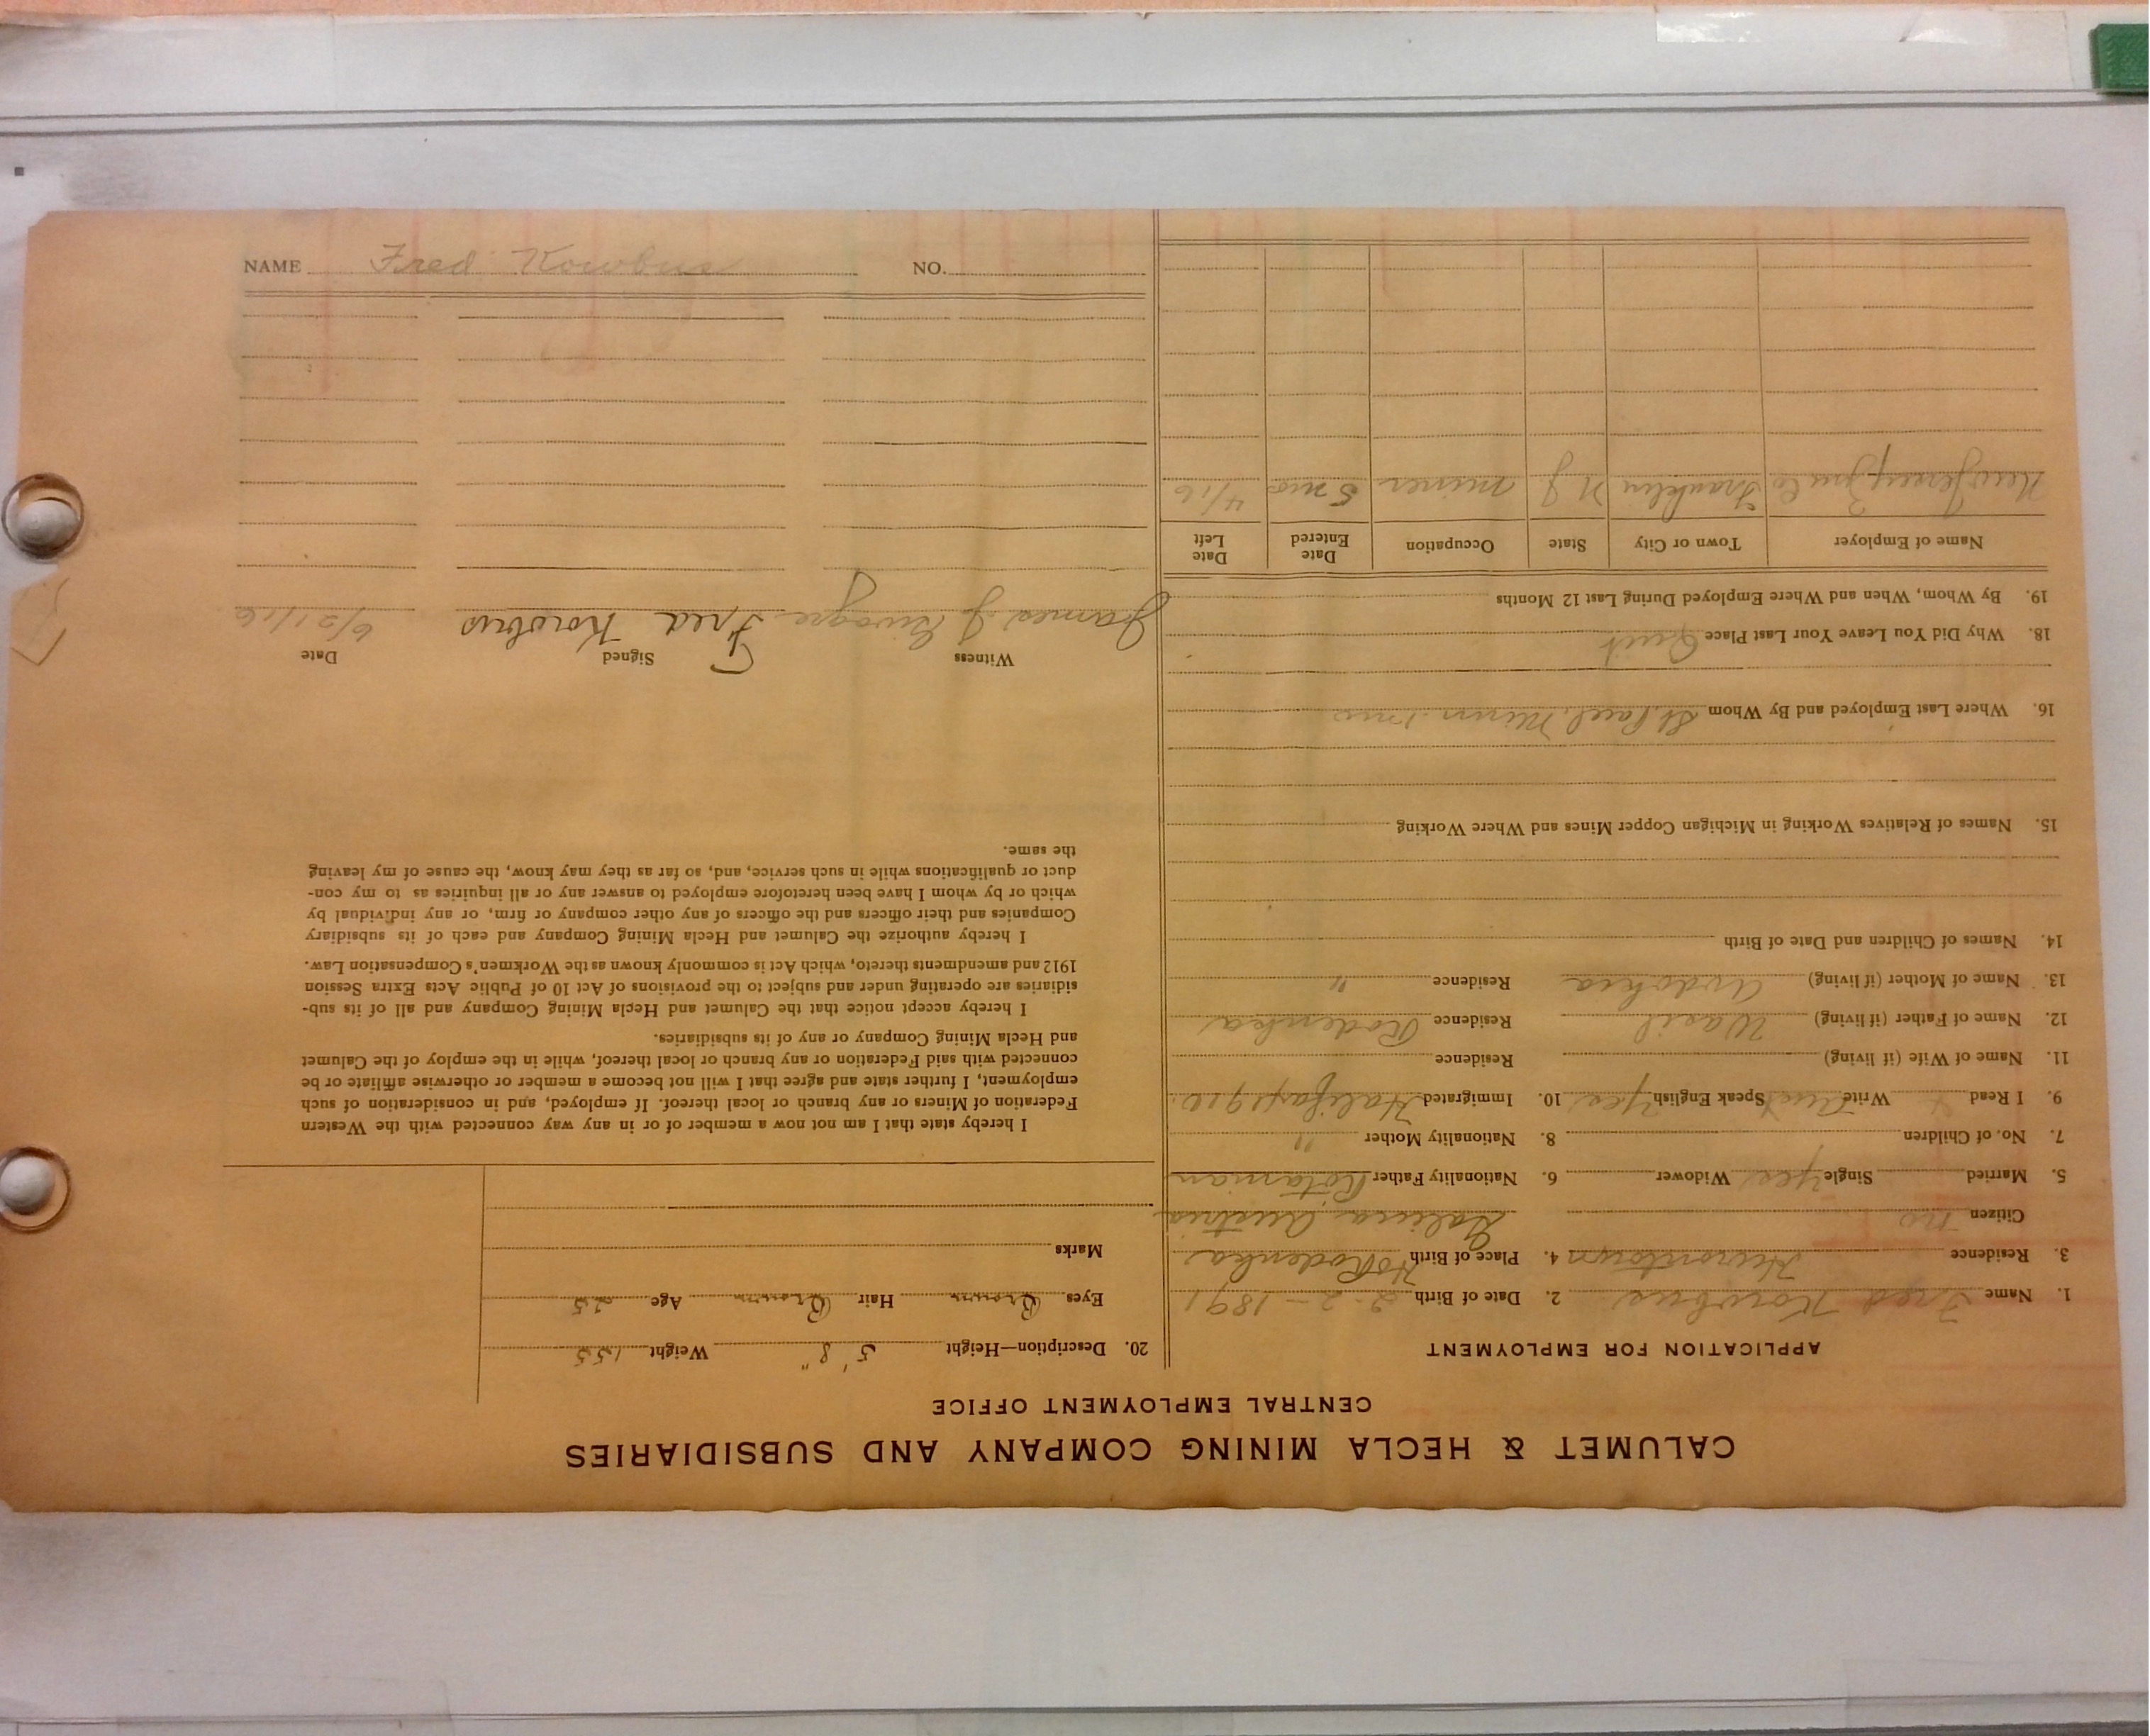 CALUMET & HECLA MINING COMPANY AND SUBSIDIARIES
CENTRAL EMPLOYMENT OFFICE
APPLICATION FOR EMPLOYMENT
1. Name Fred Kowbus 2. Date of Birth 2-2-1891
3. Residence Hurontown 4. Place of Birth Rodenka
Citizen no Galicia Austria
5. Married Single yes Widower 6. Nationality Father
7. No. of Children 8. Nationality Mother "
9. I Read Write Speak English yes 10. Immigrated Halifax 1910
11. Name of Wife (if living) Residence
12. Name of Father (if living) Wasil Residence Rodenka
13. Name of Mother (if living) Residence "
14. Names of Children and Date of Birth
15. Names of Relatives Working in Michigan Copper Mines and Where Working
16. Where Last Employed and By Whom St. Paul, Minn. 1 mo
18. Why Did You Leave Your Last Place Quit
19. By Whom, When and Where Employed During Last 12 Months
Name of Employer Town or City State Occupation Date Entered Date Left
New Jersey Zinc Co Franklin N J miner 5 mos 4/16
20. Description—Height 5' 8" Weight 155
Eyes Brown Hair Brown Age 25
Marks
I hereby state that I am not now a member of or in any way connected with the Western
Federation of Miners or any branch or local thereof. If employed, and in consideration of such
employment, I further state and agree that I will not become a member or otherwise affiliate or be
connected with said Federation or any branch or local thereof, while in the employ of the Calumet
and Hecla Mining Company or any of its subsidiaries.
I hereby accept notice that the Calumet and Hecla Mining Company and all of its sub-
sidiaries are operating under and subject to the provisions of Act 10 of Public Acts Extra Session
1912 and amendments thereto, which Act is commonly known as the Workmen's Compensation Law.
I hereby authorize the Calumet and Hecla Mining Company and each of its subsidiary
Companies and their officers and the officers of any other company or firm, or any individual by
which or by whom I have been heretofore employed to answer any or all inquiries as to my con-
duct or qualifications while in such service, and, so far as they may know, the cause of my leaving
the same.
Witness Signed Date
James J Fred Kowbus 6/21/16
NAME Fred Kowbus NO.